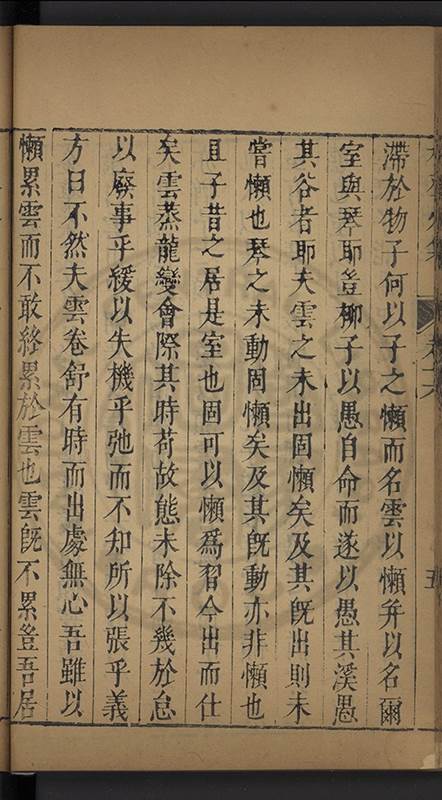 滯於物子何以子之懶而名雲以懶并以名爾
室與琴耶豈柳子以愚自命而遂以愚其溪愚
其谷者耶夫雲之未出固懶矣及其旣出則未
嘗懶也琴之未動固懶矣及其旣動亦非懶也
且子昔之居是室也固可以懶爲習今出而仕
矣雲蒸龍變會際其時苟故態未除不幾於怠
以廢事乎緩以失機乎弛而不知所以張乎義
方曰不然夫雲卷舒有時而出處無心吾雖以
懶累雲而不敢終累於雲也雲旣不累豈吾居